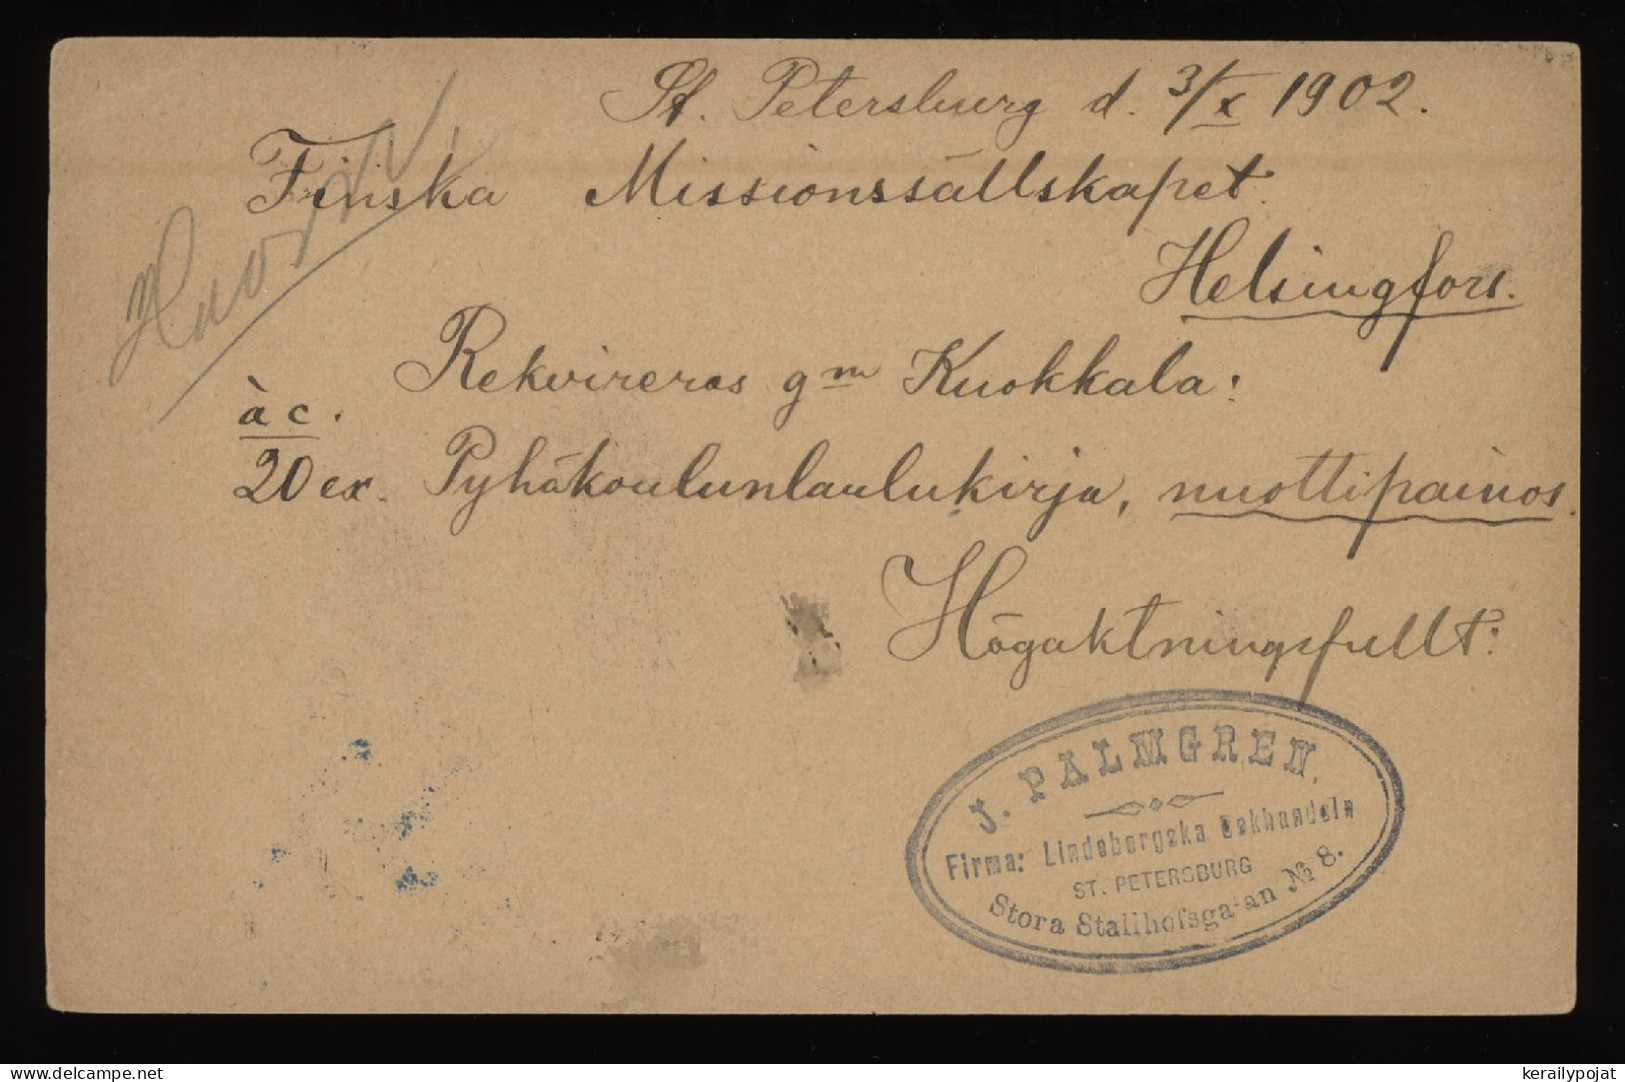 St. Petersburg d. 3/X 1902.
Finska Missionssällskapet.
Helsingfors.
Rekvireras gm Kuokkala:
à c.
20 ex. Pyhäkoulunlaulukirja, nuottipainos.
Högaktningsfullt:
J. PALMGREN.
Firma: Lindebergska Bokhandeln
ST. PETERSBURG
Stora Stallhofsgatan № 8.
www.delcampe.net
kerailypojat